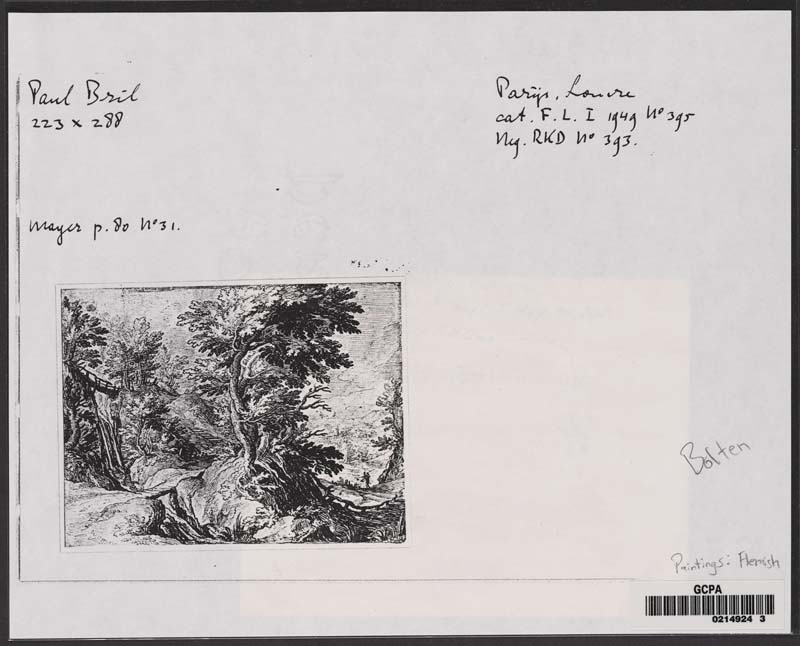 Paul Bril
223 x 288
Parijs, Louvre
cat. F. L. I 1949 No 395
Neg. RKD No 393.
Mayer p. 80 No 31.
Bolten
Paintings: Flemish
GCPA
0214924 3